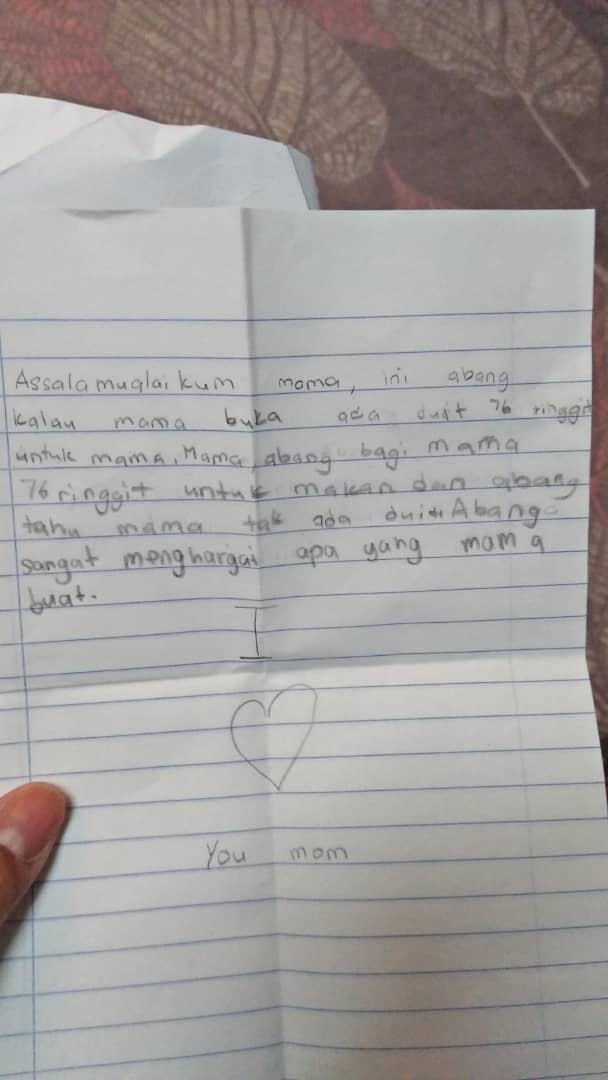 Assalamualaikum mama, ini abang
kalau mama buka ada duit 76 ringgit
untuk mama. Mama, abang bagi mama
76 ringgit untuk makan dan abang
tahu mama tak ada duit. Abang
sangat menghargai apa yang mama
buat.
I
You mom